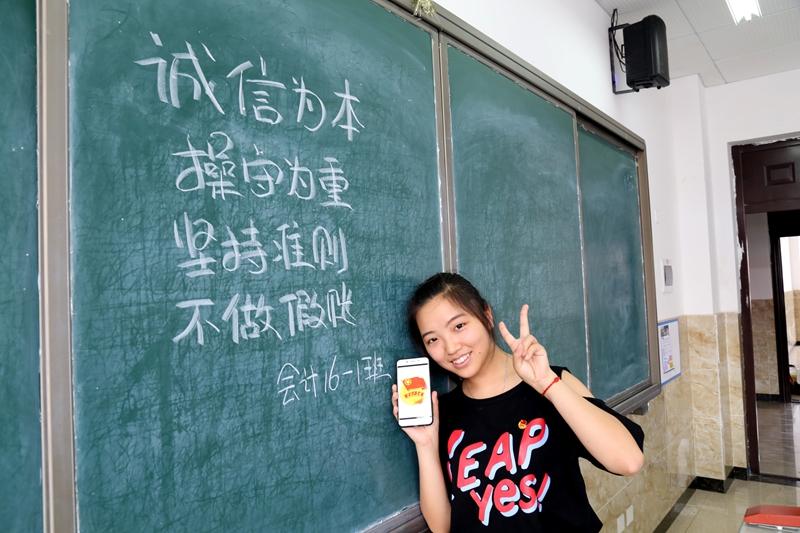 诚信为本
操守为重
坚持准则
不做假账
会计16-1班
YEAP
yes!